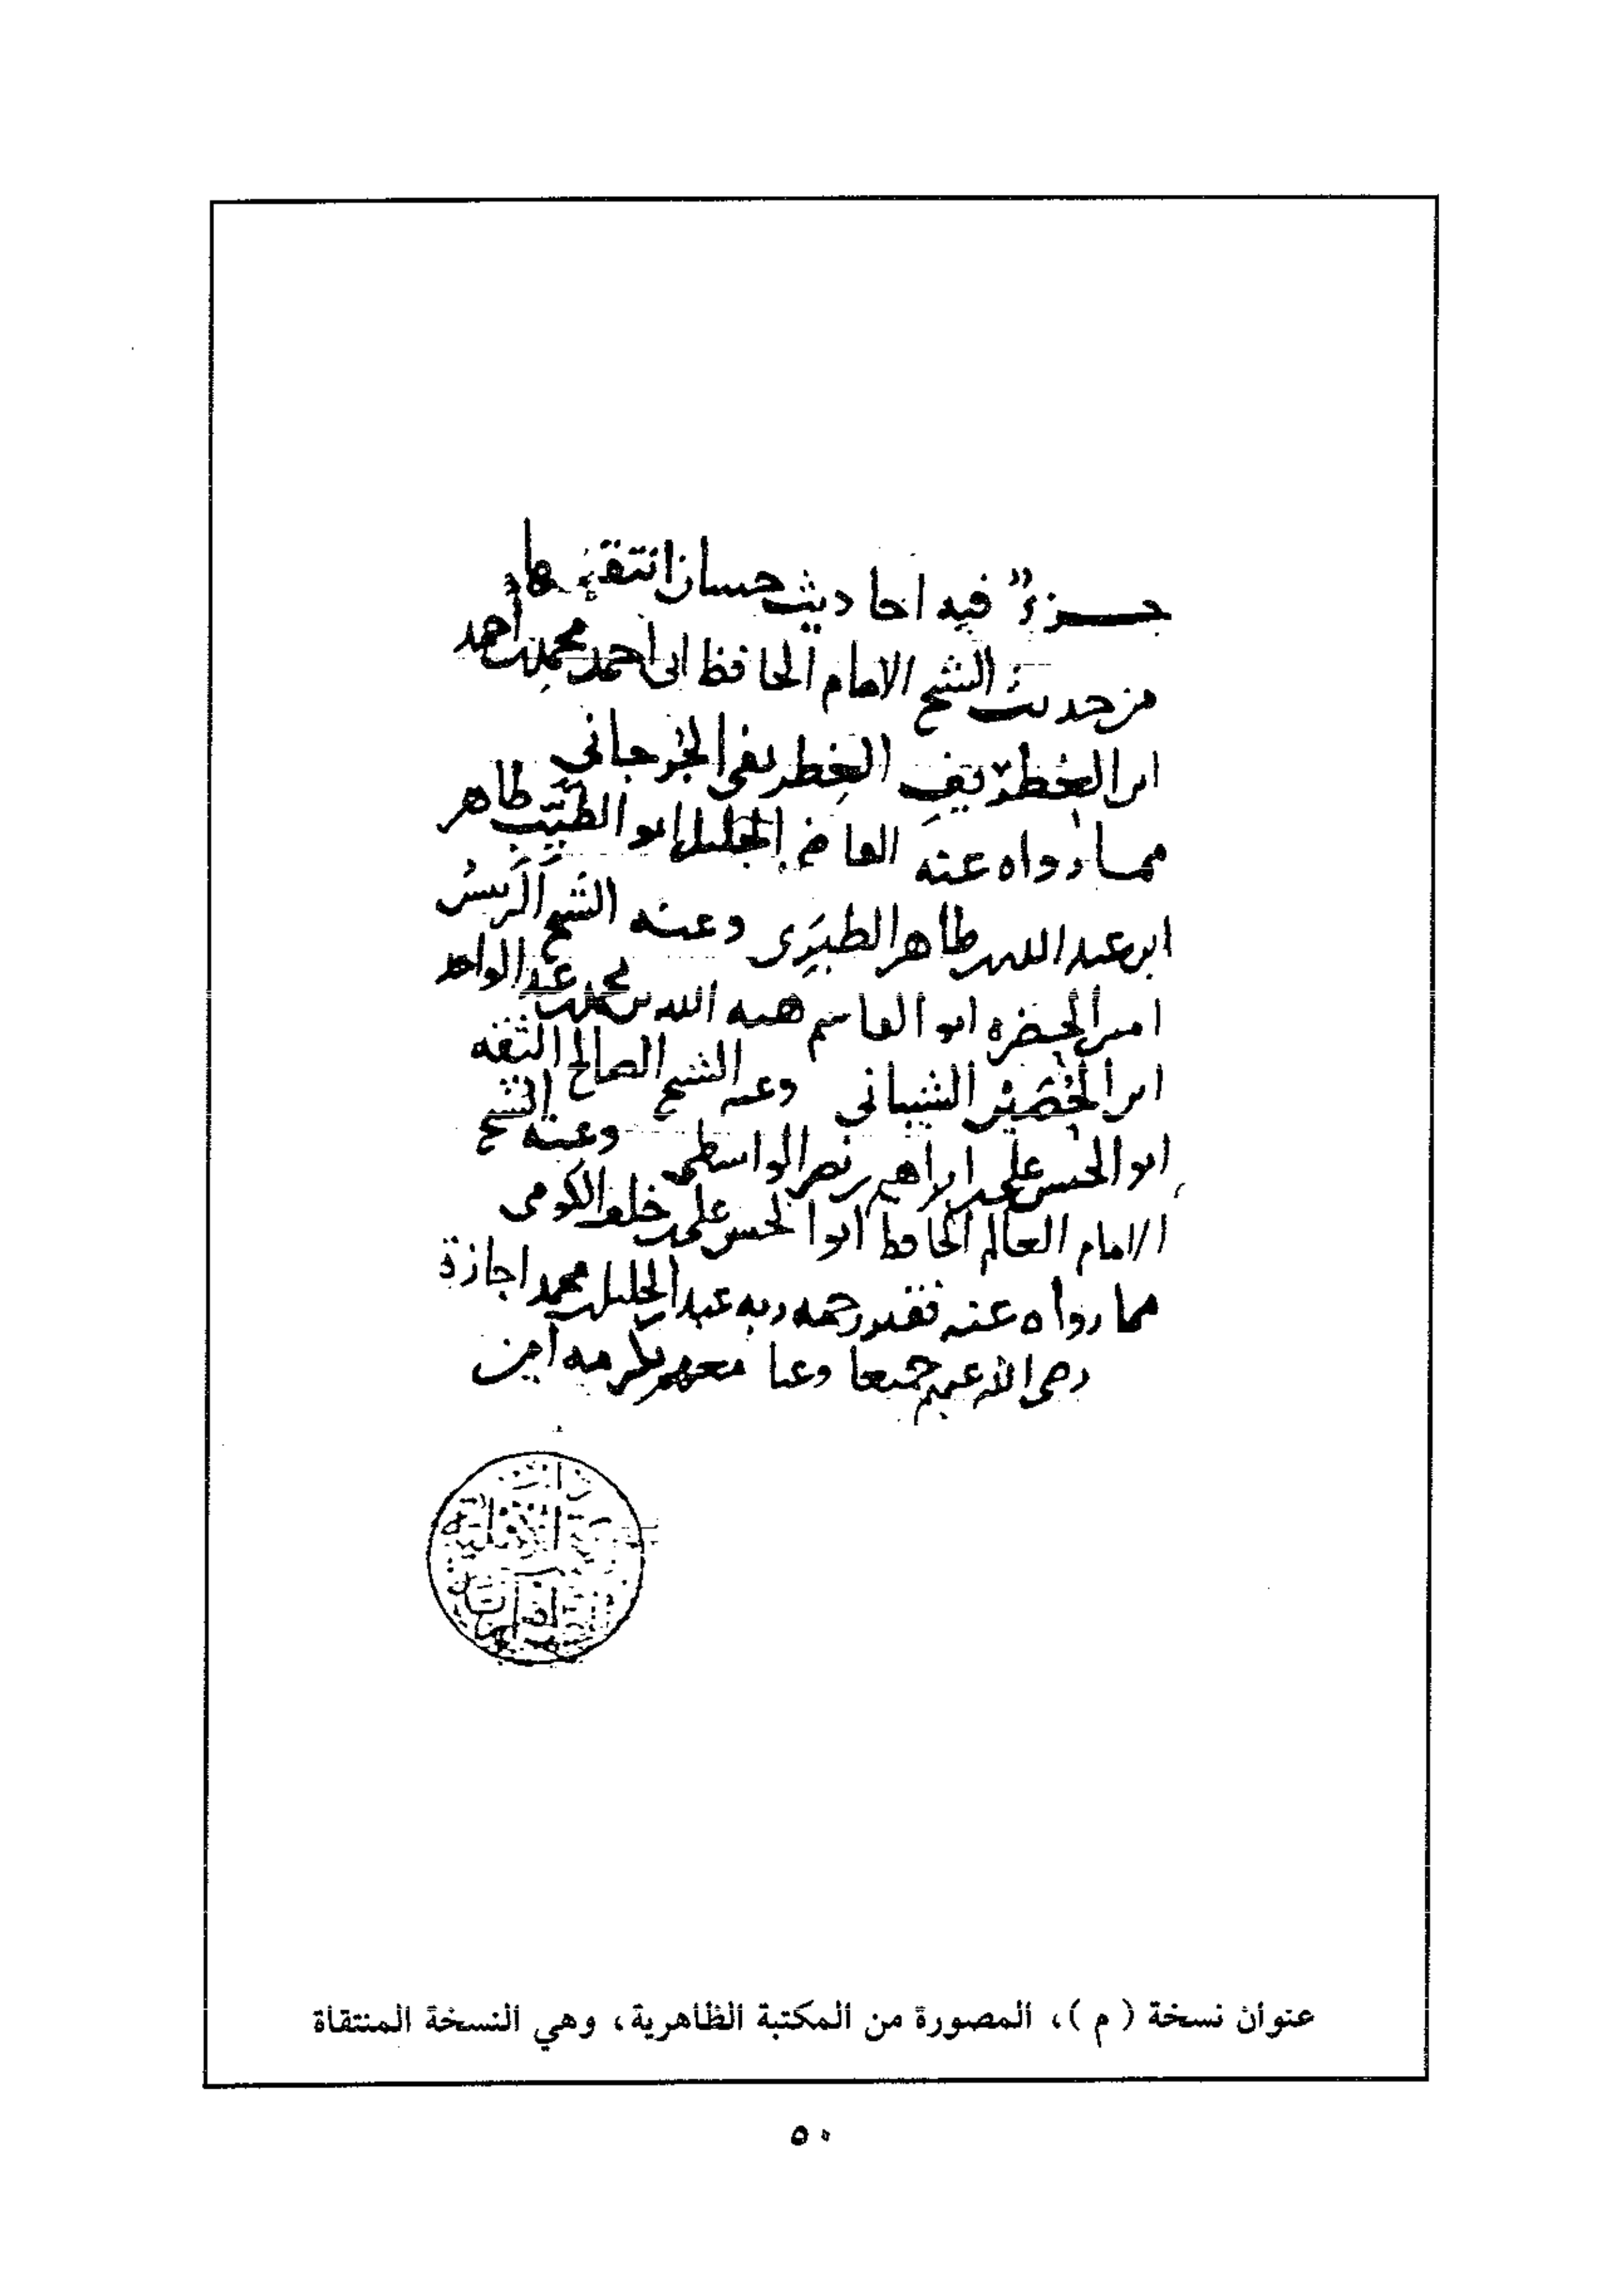 جزء فيه احاديث حسان انتقيتها
من حديث الشيخ الامام الحافظ ابى احمد محمد بن احمد
ابن الغطريف الغطريفى الجرجاني
مما رواه عنه القاضى الجليل ابو الطيب طاهر
ابن عبد الله بن طاهر الطبرى وعنه الشيخ الرئيس
امين الحضره ابو القاسم هبه الله بن محمد بن عبد الواحد
ابن الحصين الشيبانى وعنه الشيخ الصالح الثقه
ابو الحسن على بن محمد بن ابراهيم بن نصر الواسطى وعنه الشيخ
الامام العالم الحافظ ابو الحسن على بن خلف الكومى
مما رواه عنه فقير رحمه ربه عبد الجليل بن محمد اجازة
رضى الله عنهم جميعا وعنا معهم بكرمه امين
عنوان نسخة ( م )، المصورة من المكتبة الظاهرية، وهي النسخة المنتقاة
٥٠